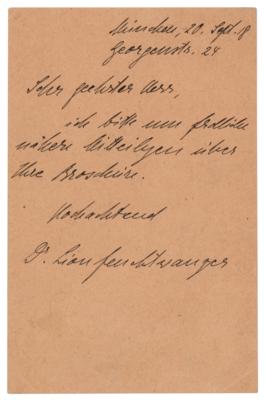 München, 20. Sept. 18
Georgenstr. 24
Sehr geehrter Herr,
ich bitte um
nähere Mitteilgen über
Ihre Broschüre.
Hochachtend
Dr. Lion Feuchtwanger